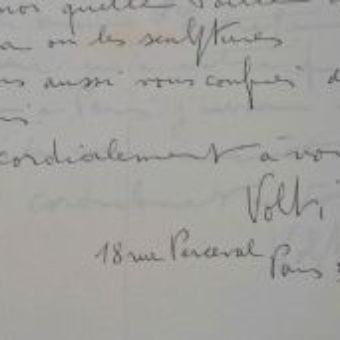 quelle
ou les sculptures
aussi vous
cordialement à vo
Volti
18 rue Perceval
Paris